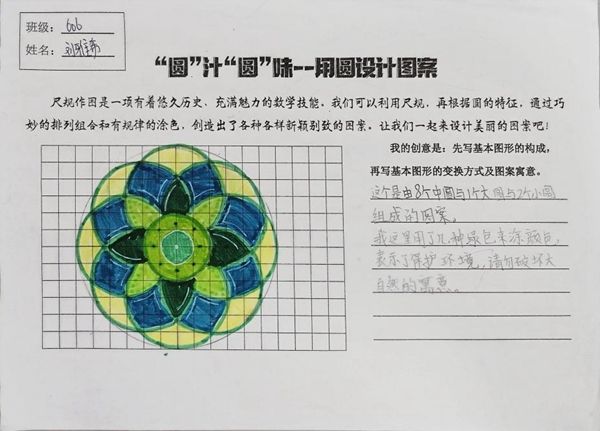 班级：606
姓名：
“圆”汁“圆”味--用圆设计图案
尺规作图是一项有着悠久历史、充满魅力的数学技能。我们可以利用尺规，再根据圆的特征，通过巧
妙的排列组合和有规律的涂色，创造出了各种各样新颖别致的图案。让我们一起来设计美丽的图案吧！
我的创意是：先写基本图形的构成，
再写基本图形的变换方式及图案寓意。
这个是由8个中圆与1个大圆与2个小圆
组成的图案。
我这里用了几种绿色来涂颜色，
表示了保护环境，请勿破坏大
自然的寓意。